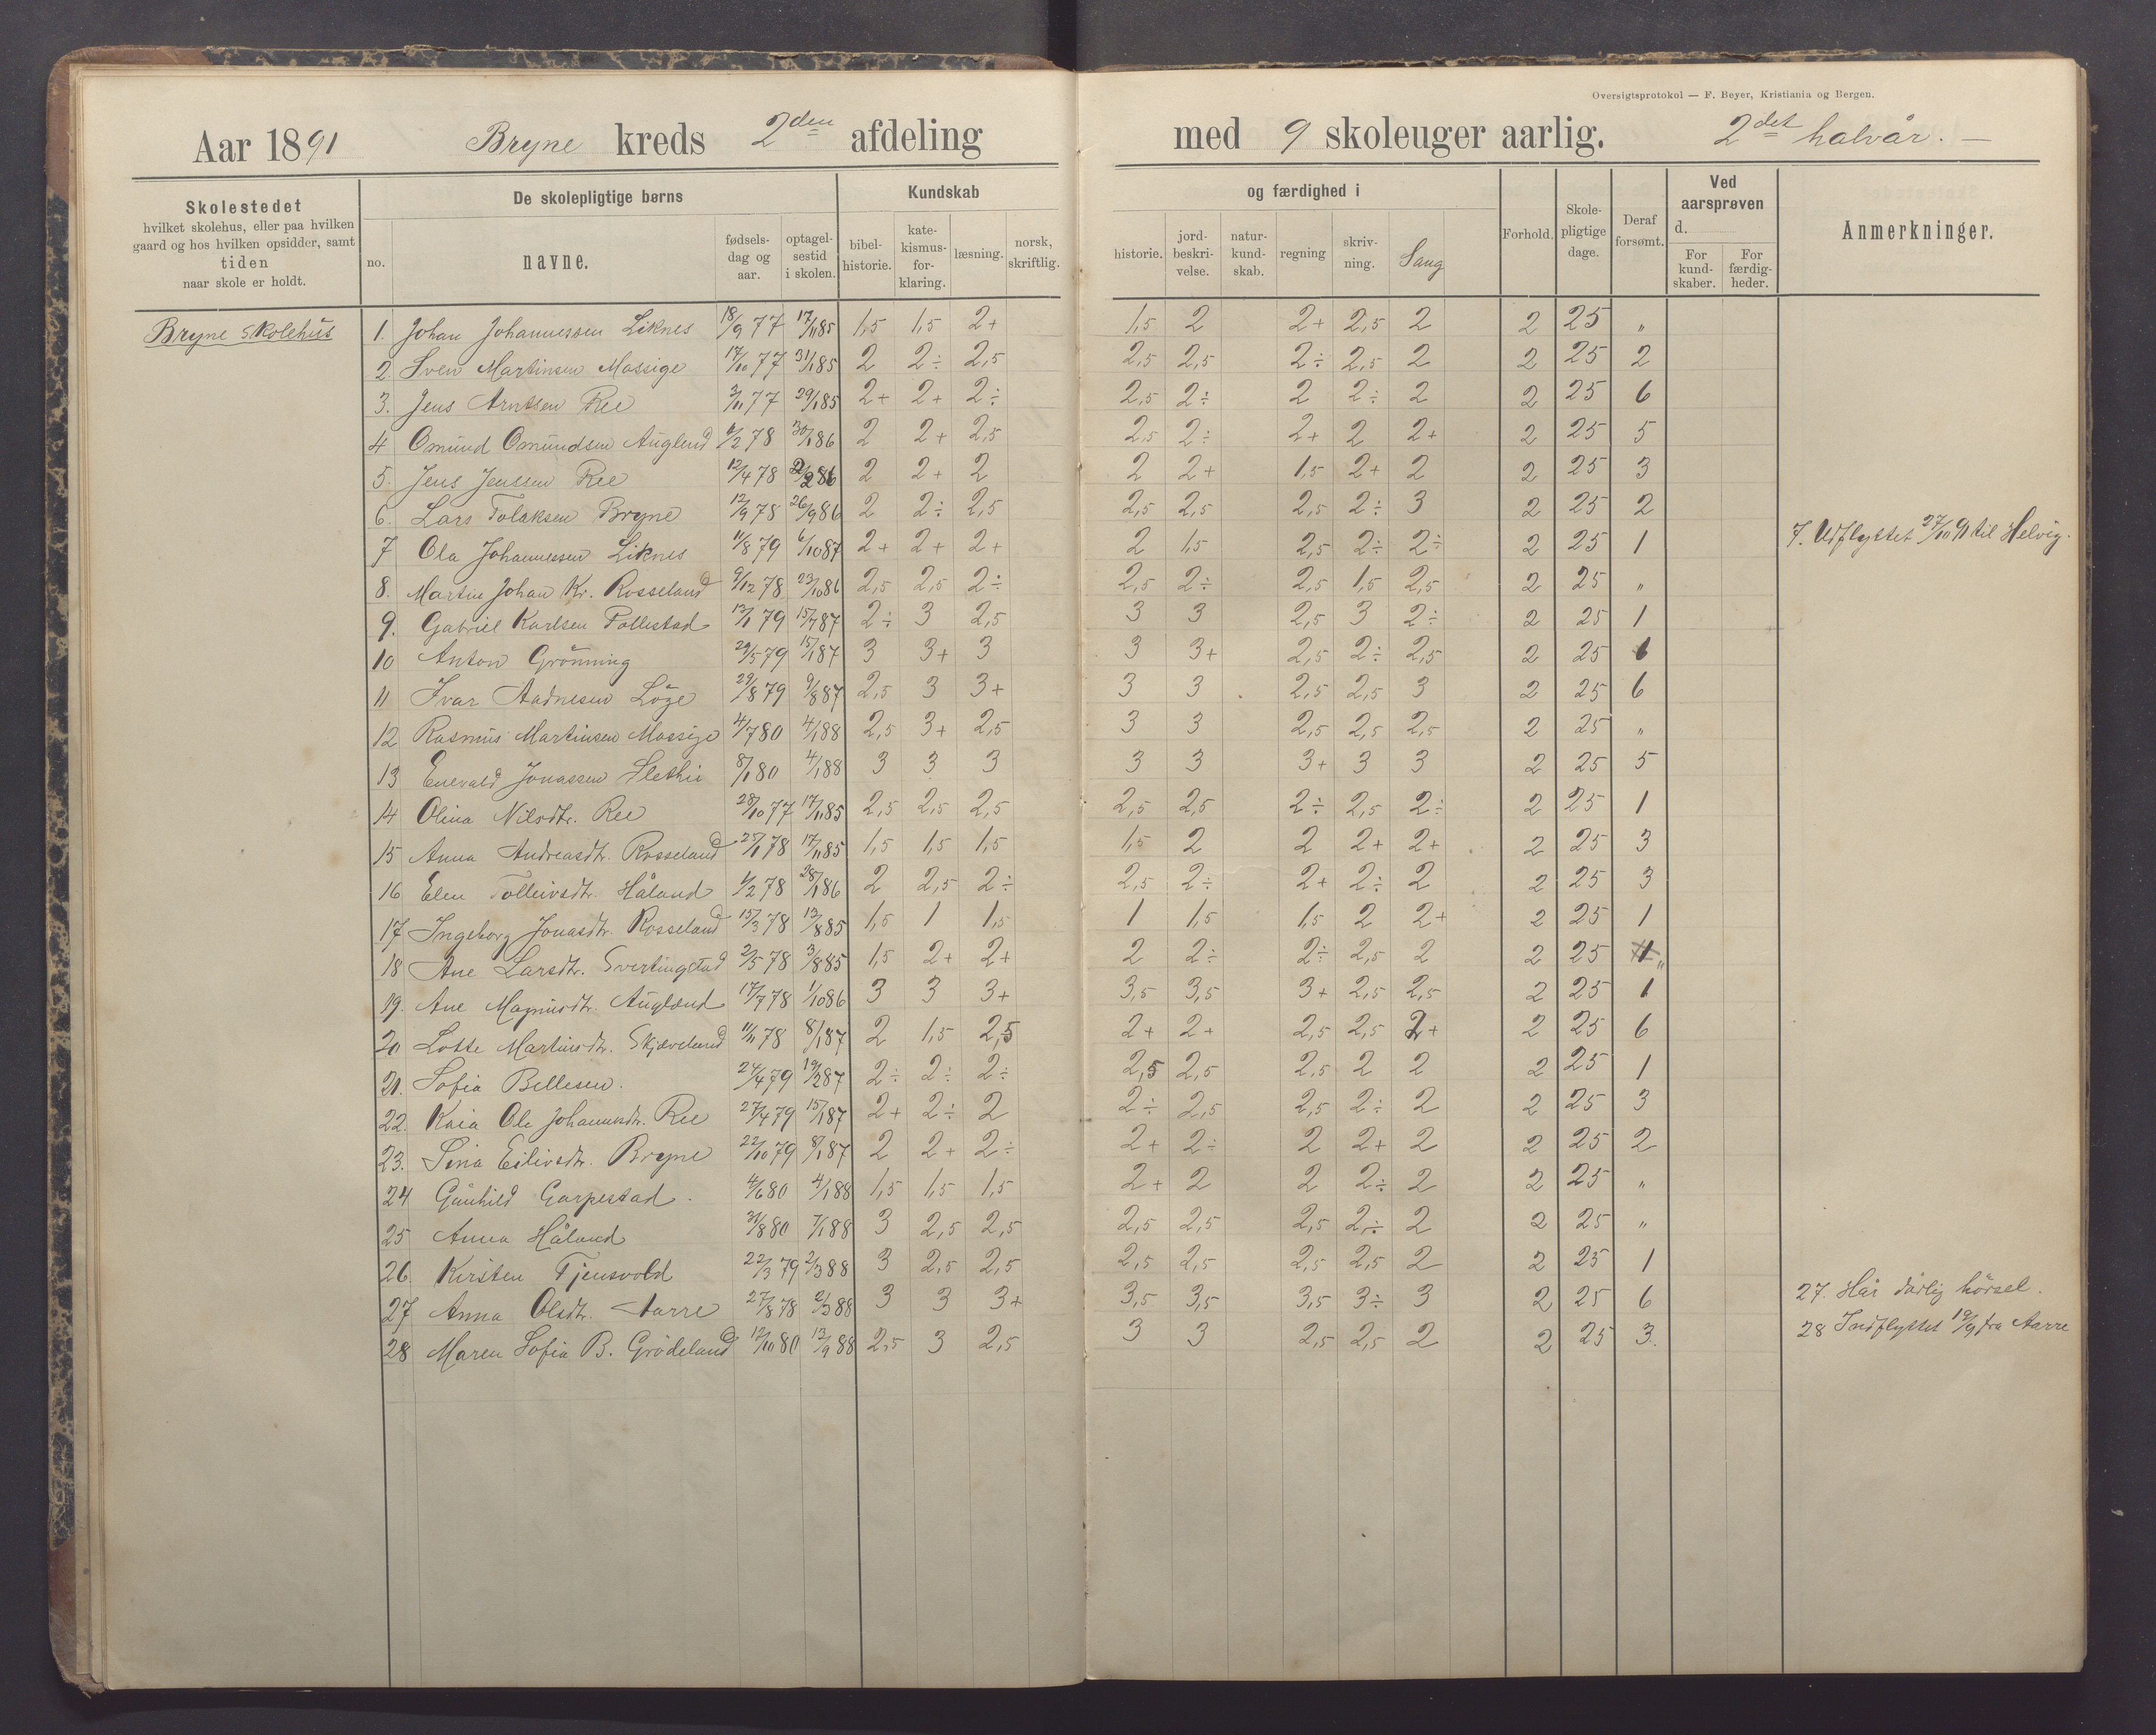 Oversigtsprotokol — F. Beyer, Kristiania og Bergen.
Aar 1891 Bryne kreds 2den afdeling med 9 skoleuger aarlig. 2det halvår. —
Skolestedet
hvilket skolehus, eller paa hvilken
gaard og hos hvilken opsidder, samt
tiden
naar skole er holdt.
De skolepligtige børns
no.
navne.
fødsels-
dag og
aar.
optagel-
sestid
i skolen.
Kundskab
bibel-
historie.
kate-
kismus-
for-
klaring.
læsning.
norsk,
skriftlig.
og færdighed i
historie.
jord-
beskri-
velse.
natur-
kund-
skab.
regning
skriv-
ning.
Sang
Forhold.
Skole-
pligtige
dage.
Deraf
forsømt.
Ved
aarsprøven
d.
For
kund-
skaber.
For
færdig-
heder.
Anmerkninger.
Bryne Skolehüs
1. Johan Johannessen Liknes 18/9 77 17/11 85 1,5 1,5 2+ 1,5 2 2+ 2,5 2 2 25 „
2. Sven Martinsen Mossige 17/10 77 31/1 85 2 2÷ 2,5 2,5 2,5 2÷ 2,5 2 2 25 2
3. Jens Arntsen Ree 2/11 77 29/1 85 2+ 2+ 2÷ 2,5 2÷ 2 2÷ 2 2 25 6
4 Omünd Omündsen Auglend 6/2 78 30/1 86 2 2+ 2,5 2,5 2÷ 2+ 2 2+ 2 25 5
5. Jens Jenssen Ree 12/4 78 2/2 86 2 2+ 2 2 2+ 1,5 2+ 2 2 25 3
6. Lars Tolaksen Bryne 12/9 78 26/9 86 2 2÷ 2,5 2,5 2,5 2,5 2÷ 3 2 25 2
7 Ola Johannessen Liknes 11/8 79 6/10 87 2+ 2+ 2+ 2 1,5 2,5 2÷ 2÷ 2 25 1 7. Udflyttet 27/10 91 til Helvig.
8. Martin Johan Kr. Rosseland 9/12 78 23/10 86 2,5 2,5 2÷ 2,5 2÷ 2,5 1,5 2,5 2 25 „
9. Gabriel Karlsen Tollestad 13/1 79 15/7 87 2÷ 3 2,5 3 3 2,5 3 2÷ 2 25 1
10 Anton Grönning 29/5 79 15/1 87 3 3+ 3 3 3+ 2,5 2÷ 2,5 2 25 1
11 Ivar Aadnesen Löge 29/8 79 9/8 87 2,5 3 3+ 3 3 2,5 2,5 3 2 25 6
12 Rasmüs Martinsen Mossige 4/7 80 4/1 88 2,5 3+ 2,5 3 3 2,5 2,5 2,5 2 25 „
13 Enevald Jonassen 8/1 80 4/1 88 3 3 3 3 3 3+ 3 3 2 25 5
14 Olina Nilsdtr. Ree 28/10 77 17/11 85 2,5 2,5 2,5 2,5 2,5 2÷ 2,5 2÷ 2 25 1
15 Anna Andreasdtr. Rosseland 25/1 78 17/11 85 1,5 1,5 1,5 1,5 2 2 2+ 2+ 2 25 3
16 Elen Tolleivsdtr. Håland 1/2 78 28/1 86 2 2,5 2÷ 2,5 2÷ 2+ 2÷ 2 2 25 3
17 Ingeborg Jonasdtr. Rosseland 15/3 78 13/8 85 1,5 1 1,5 1 1,5 1,5 2 2+ 2 25 1
18 Ane Larsdtr. Svertingstad 2/5 78 3/8 85 1,5 2+ 2+ 2 2÷ 2÷ 2,5 2 2 25 „
19. Ane Magnüsdtr. Auglænd 17/7 78 1/10 86 3 3 3+ 3,5 3,5 3+ 2,5 2,5 2 25 1
20 Lotte Martinsdtr. Skjæveland 11/11 78 8/1 87 2 1,5 2,5 2+ 2+ 2,5 2,5 2+ 2 25 6
21. Sofia Bellesen. 24/4 79 19/2 87 2÷ 2÷ 2÷ 2,5 2,5 2,5 2 2 2 25 1
22. Kaia Ole Johannesdtr. Ree 27/4 79 15/1 87 2+ 2÷ 2 2÷ 2,5 2,5 2÷ 2 2 25 3
23. Sina Eilivsdtr. Bryne 22/10 79 8/1 87 2 2+ 2÷ 2+ 2÷ 2 2+ 2 2 25 2
24 Günhild Garpestad. 4/6 80 4/1 88 1,5 1,5 1,5 2+ 2 2 2÷ 2 2 25 „
25 Anna Håland 31/8 80 7/1 88 3 2,5 2,5 2,5 2,5 2,5 2÷ 2 2 25 „
26. Kirsten Tjensvold 22/3 79 2/3 88 3 2,5 2,5 2,5 2,5 2,5 2,5 2 2 25 1
27 Anna Olsdtr. Aarre 27/8 78 2/3 88 3 3 3+ 3,5 3,5 3,5 3÷ 3 2 25 6 27. Har dårlig hörsel.
28 Maren Sofia B. Grödeland 12/10 80 12/9 88 2,5 3 2,5 3 3 2,5 2,5 2 2 25 3. 28 Indflyttet 19/9 fra Aarre